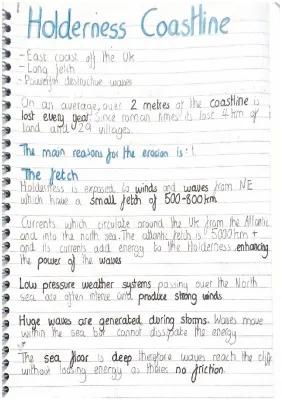 Holderness Coastline
- East coast off the UK
- Long fetch
- Powerful destructive waves
On an average, over 2 metres of the coastline is
lost every year. Since roman times its lost 4km of
land and 29 villages.
The main reasons for the erosion is:
The fetch
Holderness is exposed to winds and waves from NE
which have a small fetch of 500-800km
Currents which circulate around the UK from the Atlantic
and into the north sea. The atlantic fetch is 5000km +
and its currents add energy to the Holderness enhancing
the power of the waves
Low pressure weather systems passing over the North
sea are often intense and produce strong winds.
Huge waves are generated during storms. Waves move
within the sea but cannot dissipate the energy
The sea floor is deep therefore waves reach the cliff
without losing energy as theres no friction.